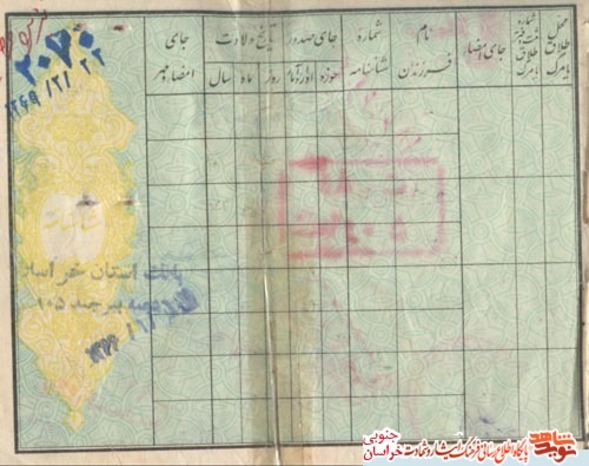 محل طلاق یا مرگ
شماره ثبت دفتر طلاق یا مرگ
جای امضاء
نام فرزندان
شماره شناسنامه
جای صدور
حوزه
اداره آمار
تاریخ ولادت
روز
ماه
سال
جای امضاء و مهر
۲۰۷۰
۱۳۶۹/۲/۲۲
شناسنامه
بانک استان خراسان
شعبه بیرجند ۱۰۵
پایگاه اطلاع رسانی فرهنگ ایثار و شهادت
خراسان جنوبی
نوید شاهد